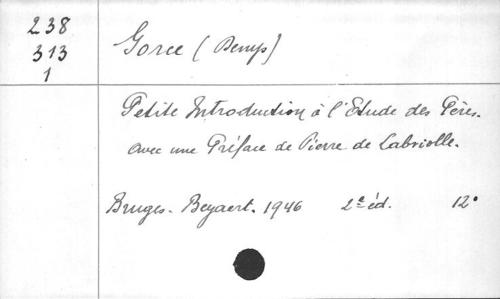 238
313
1
Gorce (Denys)
Petite Introduction à l'Etude des Pères.
avec une Préface de Pierre de Labriolle.
Bruges. Beyaert. 1946 2e éd. 12°